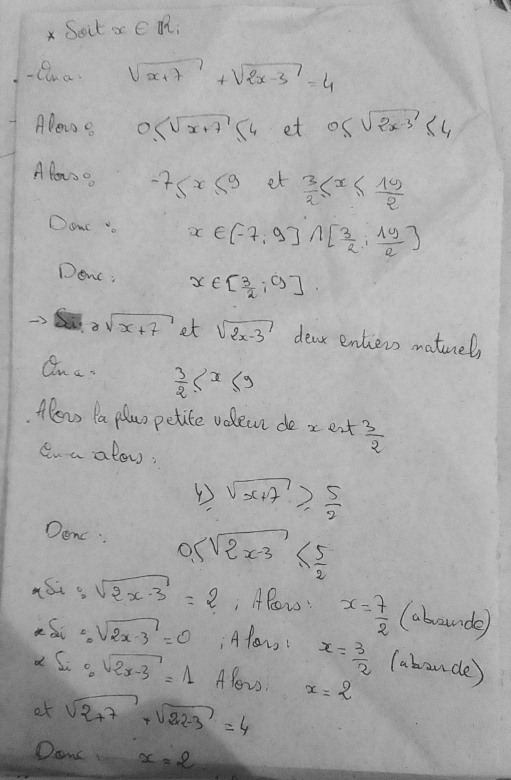 * Soit x ∈ ℝ:
- On a: √(x+7) + √(2x-3) = 4
Alors: 0 ≤ √(x+7) ≤ 4 et 0 ≤ √(2x-3) ≤ 4
Alors: -7 ≤ x ≤ 9 et 3/2 ≤ x ≤ 19/2
Donc: x ∈ [-7; 9] ∩ [3/2; 19/2]
Donc: x ∈ [3/2; 9].
→ Si: √(x+7) et √(2x-3) deux entiers naturels
On a: 3/2 ≤ x ≤ 9
. Alors la plus petite valeur de x est 3/2
On a alors:
4 ≥ √(x+7) ≥ 5/2
Donc: 0 ≤ √(2x-3) ≤ 5/2
* Si: √(2x-3) = 2 ; Alors: x = 7/2 (absurde)
* Si: √(2x-3) = 0 ; Alors: x = 3/2 (absurde)
* Si: √(2x-3) = 1 Alors: x = 2
et √(2+7) + √(2.2-3) = 4
Donc: x = 2